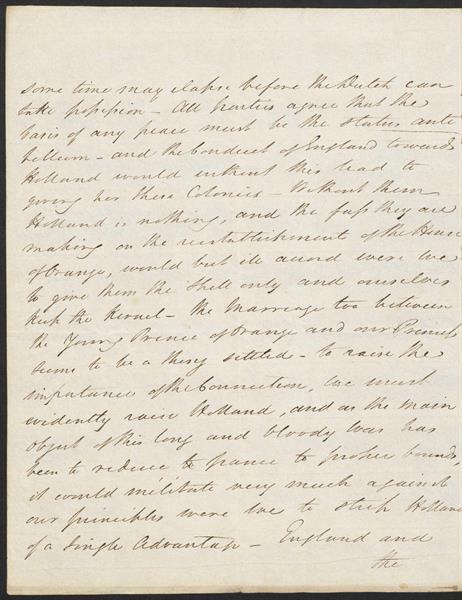 some time may elapse before the Dutch can
take possession – All parties agree that the
basis of any peace must be the status ante
bellum – and the Conduct of England towards
Holland would without this lead to
giving her these Colonies – Without them
Holland is nothing, and the fuss they are
making on the reestablishment of the House
of Orange, would but ill accord were we
to give them the Shell only and ourselves
keep the Kernel – The Marriage too between
the Young Prince of Orange and our Princess
seems to be a thing settled – to raise the
importance of the Connection, we must
evidently raise Holland, and as the main
object of this long and bloody War has
been to reduce to france to proper bounds,
it would militate very much against
our principles were we to strip Holland
of a single Advantage – England and
the